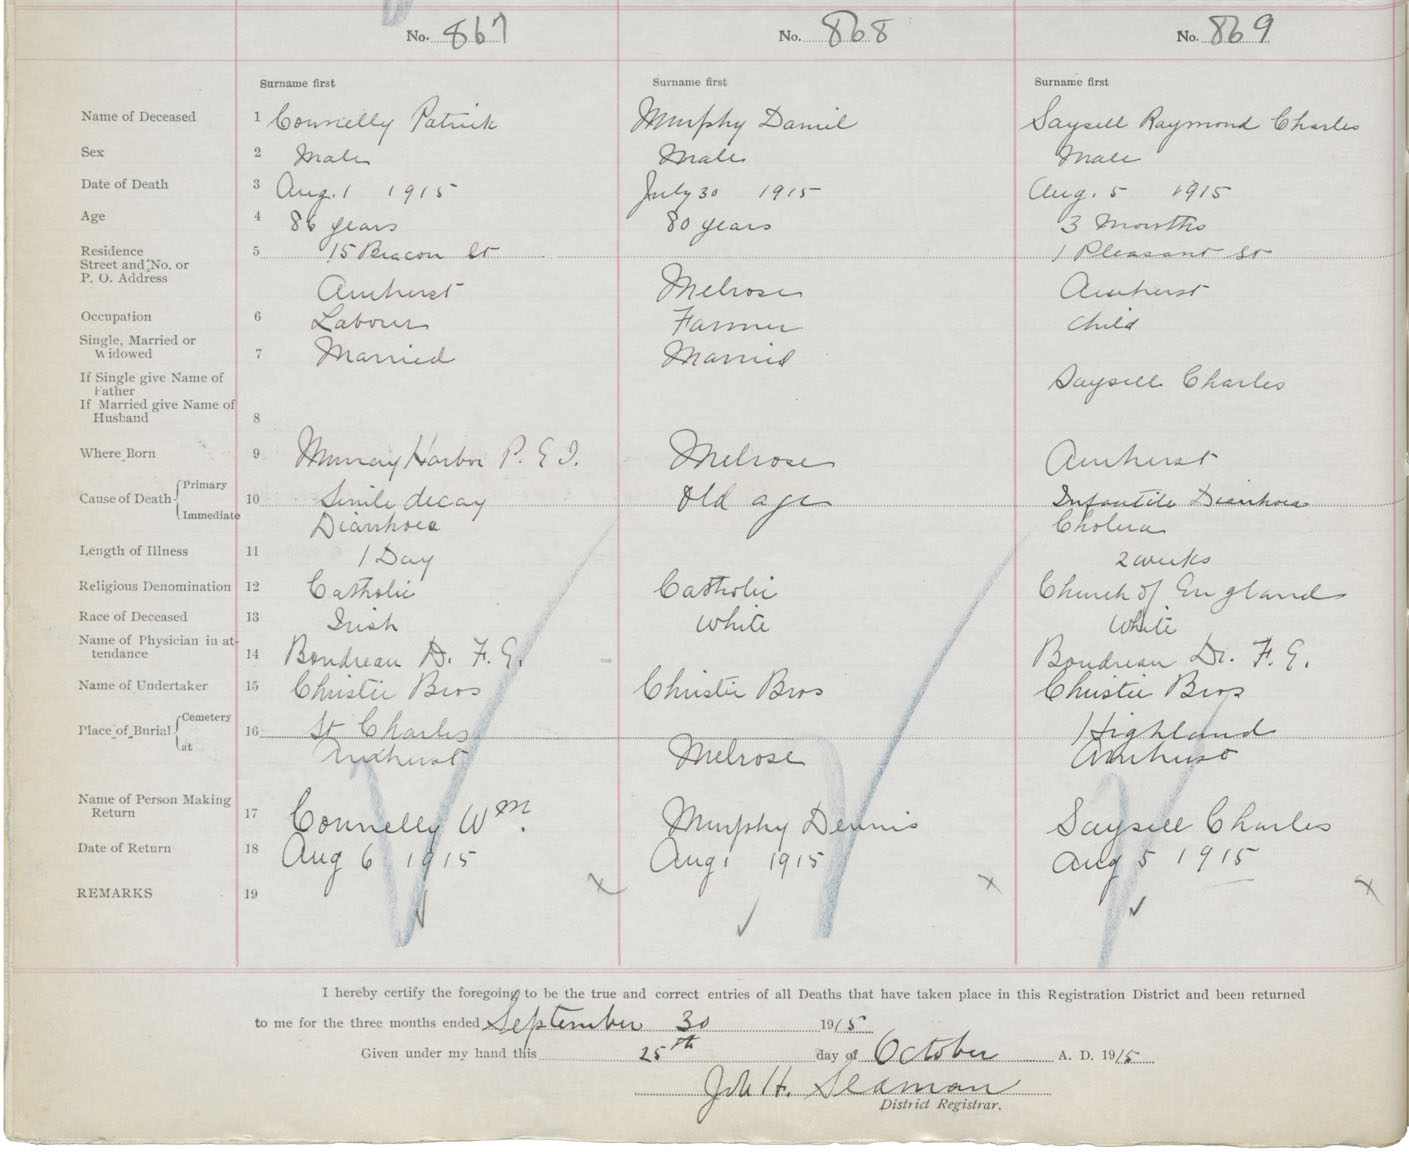 No. 867 No. 868 No. 869
Surname first Surname first Surname first
Name of Deceased 1 Connelly Patrick Murphy Daniel Saysell Raymond Charles
Sex 2 Male Male Male
Date of Death 3 Aug. 1 1915 July 30 1915 Aug. 5 1915
Age 4 86 years 80 years 3 Months
Residence 5 15 Beacon St 1 Pleasant St
Street and No. or
P. O. Address Amherst Melrose Amherst
Occupation 6 Labourer Farmer Child
Single, Married or
Widowed 7 Married Married
If Single give Name of
Father Saysell Charles
If Married give Name of
Husband 8
Where Born 9 Murray Harbor P. E I. Melrose Amherst
Cause of Death Primary 10 Senile decay Old age Infantile Diarrhoea
Immediate Diarrhoea Cholera
Length of Illness 11 1 Day 2 weeks
Religious Denomination 12 Catholic Catholic Church of England
Race of Deceased 13 Irish White White
Name of Physician in at-
tendance 14 Boudreau D. F. E. Boudreau Dr. F. E.
Name of Undertaker 15 Christie Bros Christie Bros Christie Bros
Place of Burial Cemetery 16 St Charles Highland
at Amherst Melrose Amherst
Name of Person Making
Return 17 Connelly Wm. Murphy Dennis Saysell Charles
Date of Return 18 Aug 6 1915 Aug 1 1915 Aug 5 1915
REMARKS 19
I hereby certify the foregoing to be the true and correct entries of all Deaths that have taken place in this Registration District and been returned
to me for the three months ended September 30 1915
Given under my hand this 25th day of October A. D. 1915
Seaman
District Registrar.